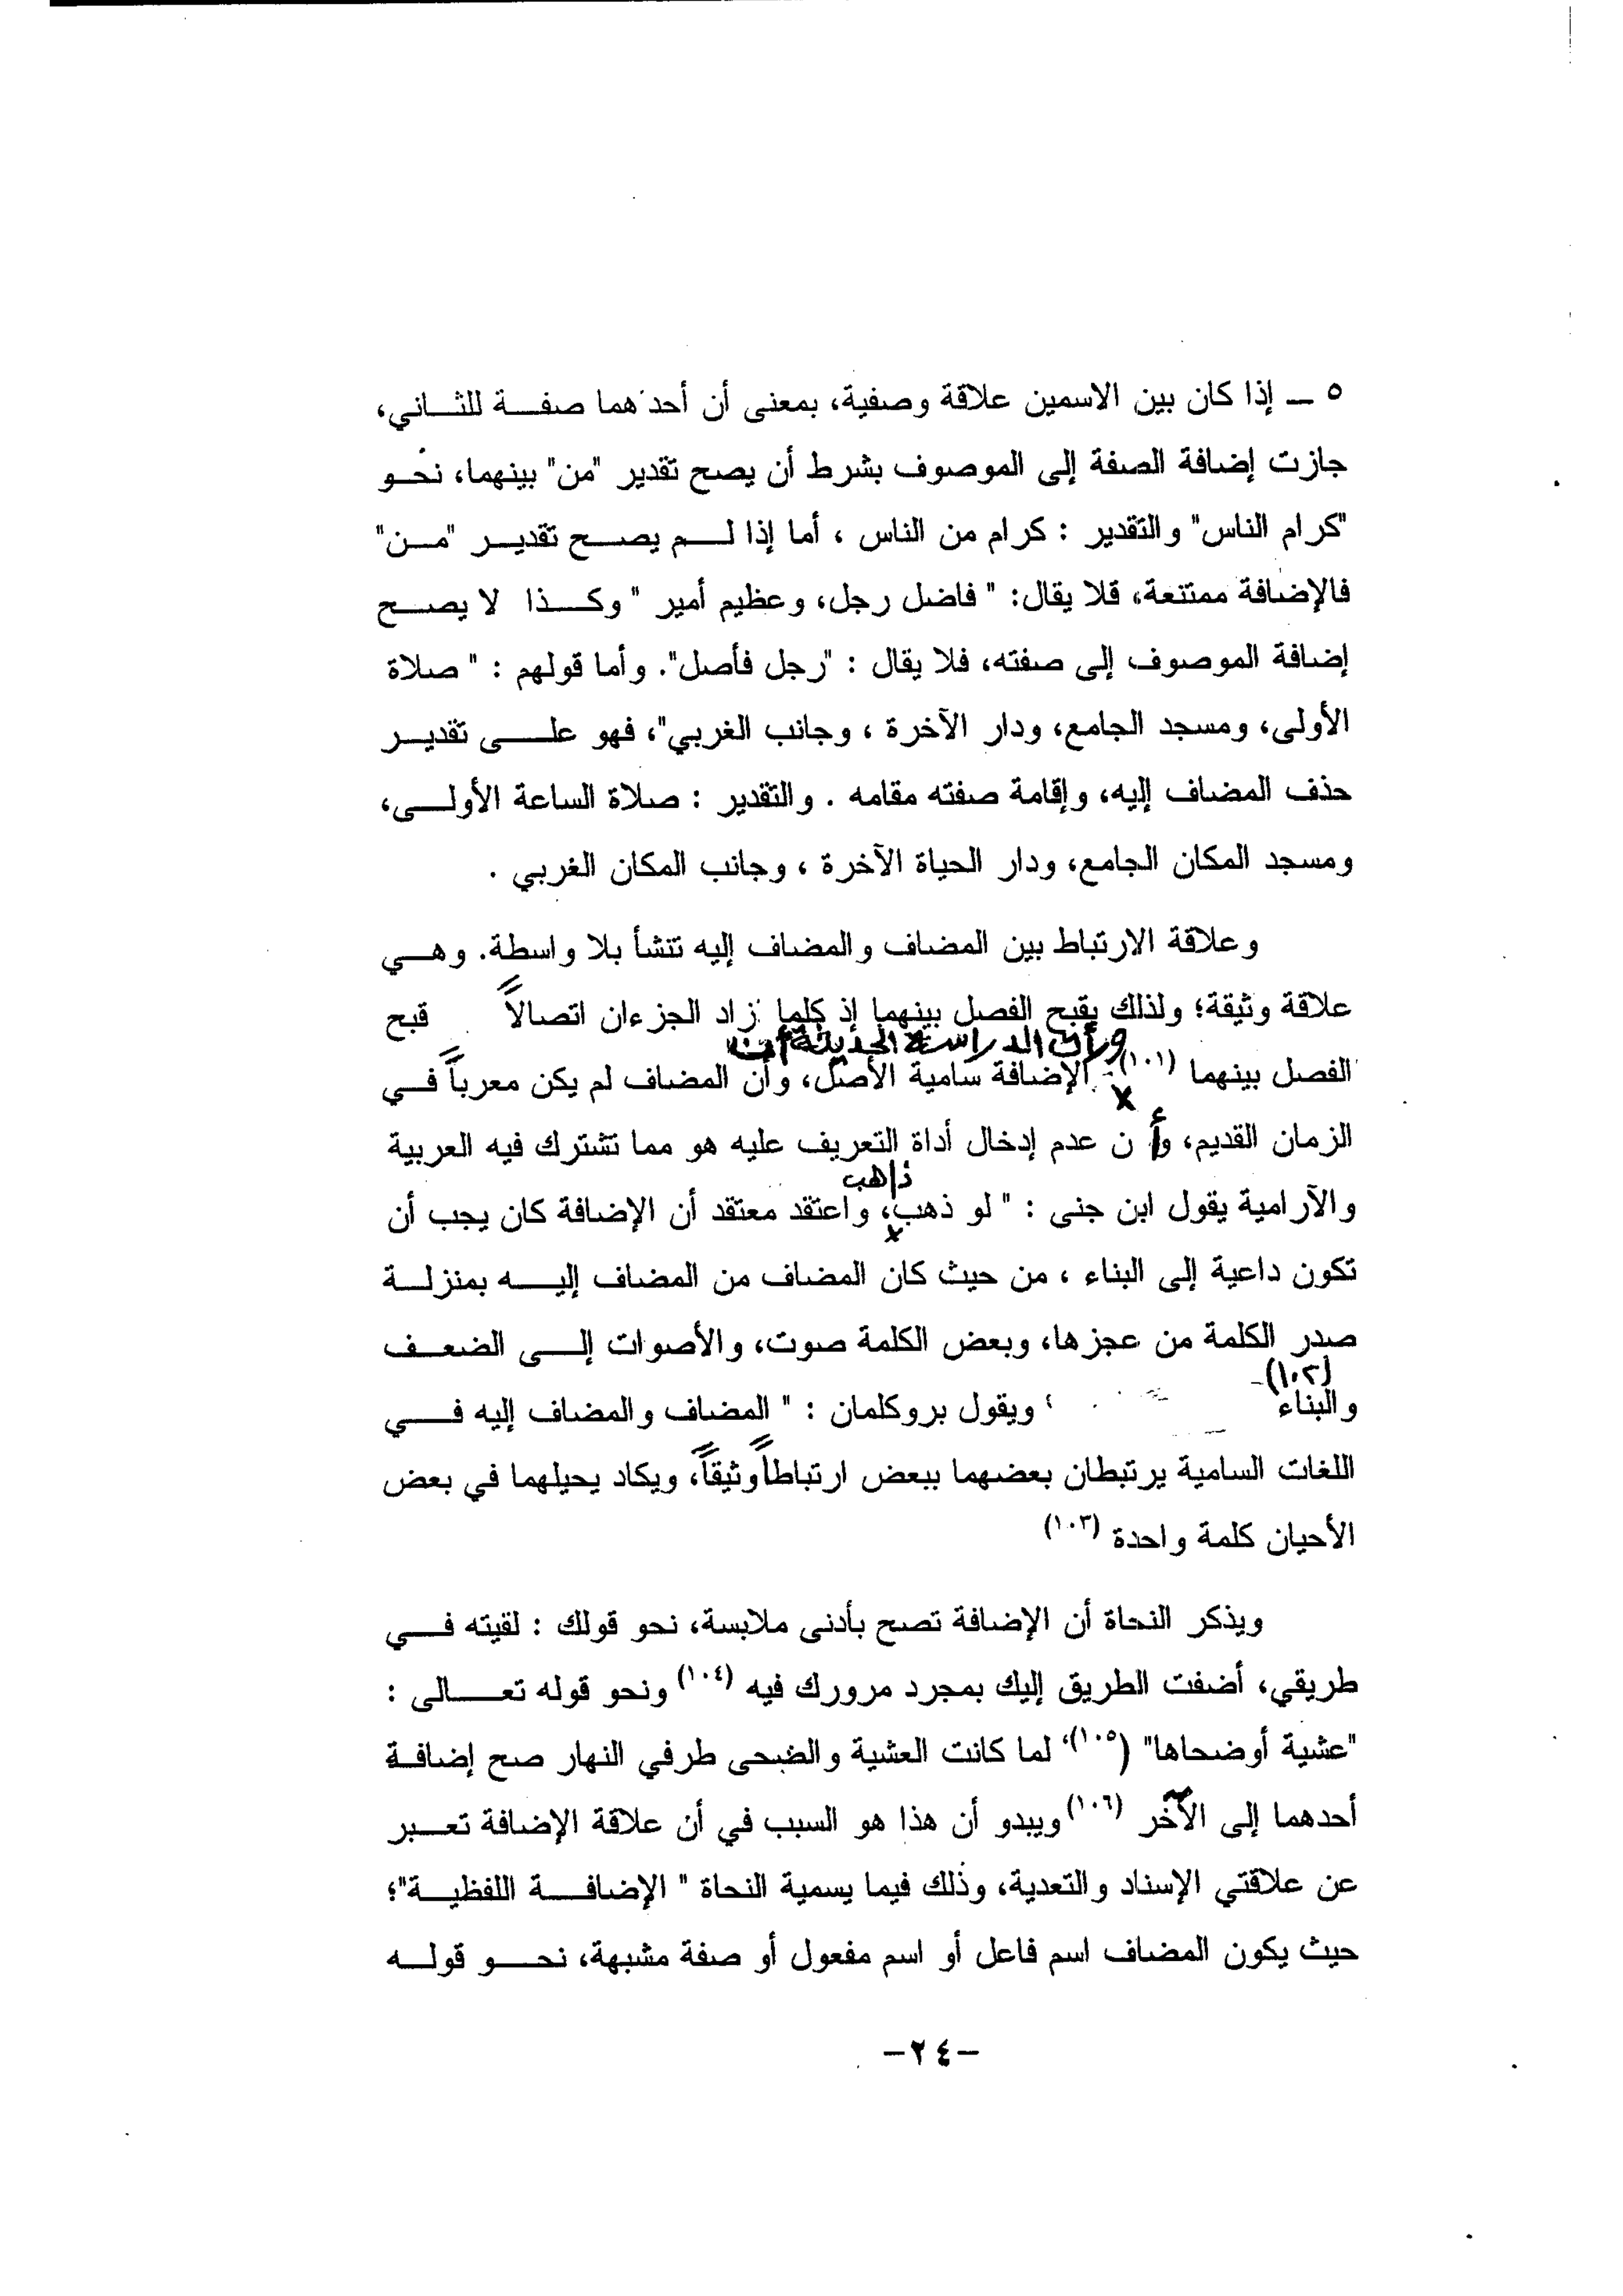 ٥ ــ إذا كان بين الاسمين علاقة وصفية، بمعنى أن أحدهما صفـــة للثـــاني،
جازت إضافة الصفة إلى الموصوف بشرط أن يصح تقدير "من" بينهما، نحـو
"كرام الناس" والتقدير : كرام من الناس ، أما إذا لـــم يصـــح تقديـــر "مــن"
فالإضافة ممتنعة، فلا يقال: " فاضل رجل، وعظيم أمير " وكـــذا لا يصـــح
إضافة الموصوف إلى صفته، فلا يقال : "رجل فأصل". وأما قولهم : " صلاة
الأولى، ومسجد الجامع، ودار الآخرة ، وجانب الغربي"، فهو علـــى تقديـــر
حذف المضاف إليه، وإقامة صفته مقامه . والتقدير : صلاة الساعة الأولـــى،
ومسجد المكان الجامع، ودار الحياة الآخرة ، وجانب المكان الغربي .
وعلاقة الارتباط بين المضاف والمضاف إليه تنشأ بلا واسطة. وهـــي
علاقة وثيقة؛ ولذلك يقبح الفصل بينهما إذ كلما زاد الجزءان اتصالاً قبح
ورأت الدراسة الحديثة أن
الفصل بينهما (١٠١) الإضافة سامية الأصل، وأن المضاف لم يكن معرباً فـــي
الزمان القديم، وأن عدم إدخال أداة التعريف عليه هو مما تشترك فيه العربية
ذاهب
والآرامية يقول ابن جنى : " لو ذهب، واعتقد معتقد أن الإضافة كان يجب أن
تكون داعية إلى البناء ، من حيث كان المضاف من المضاف إليـــه بمنزلـــة
صدر الكلمة من عجزها، وبعض الكلمة صوت، والأصوات إلـــى الضعـــف
(١٠٢)
والبناء ؛ ويقول بروكلمان : " المضاف والمضاف إليه فـــي
اللغات السامية يرتبطان بعضهما ببعض ارتباطاً وثيقاً، ويكاد يحيلهما في بعض
الأحيان كلمة واحدة (١٠٣)
ويذكر النحاة أن الإضافة تصح بأدنى ملابسة، نحو قولك : لقيته فـــي
طريقي، أضفت الطريق إليك بمجرد مرورك فيه (١٠٤) ونحو قوله تعـــالى :
"عشية أوضحاها" (١٠٥)، لما كانت العشية والضحى طرفي النهار صح إضافـة
أحدهما إلى الآخر (١٠٦) ويبدو أن هذا هو السبب في أن علاقة الإضافة تعـــبر
عن علاقتي الإسناد والتعدية، وذلك فيما يسمية النحاة " الإضافـــة اللفظيـــة"؛
حيث يكون المضاف اسم فاعل أو اسم مفعول أو صفة مشبهة، نحـــو قولـــه
-٢٤-